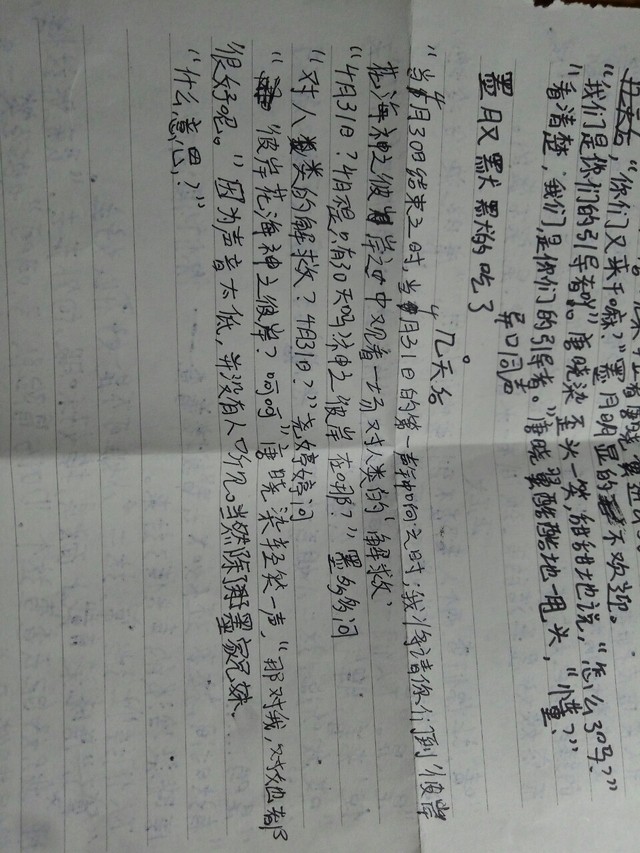 "你们又来干嘛?"墨月明显的不欢迎。
"我们是你们的引导者吖"唐晓染歪头一笑,甜甜地说,"怎么30号?"
"看清楚,我们是你们的引导者。"唐晓翼酷酷地一甩头,"懂?"
异口同声
墨月又默默的吃了
几天后
"当4月30日结束之时,当4月31日的第一声钟响之时;我将请你们到彼岸
花海神之彼岸之中观看一场对人类的'解救'
"4月31日?4月不是只有30天吗?神之彼岸在哪?"墨多多问
"对人类的解救?4月31日?"尧婷婷问
"彼岸花海神之彼岸?呵呵"唐晓染轻笑一声,"那对我,对她都
很好呢。"因为声音太低,并没有人听见。当然除了墨家兄妹。
"什么意思?"